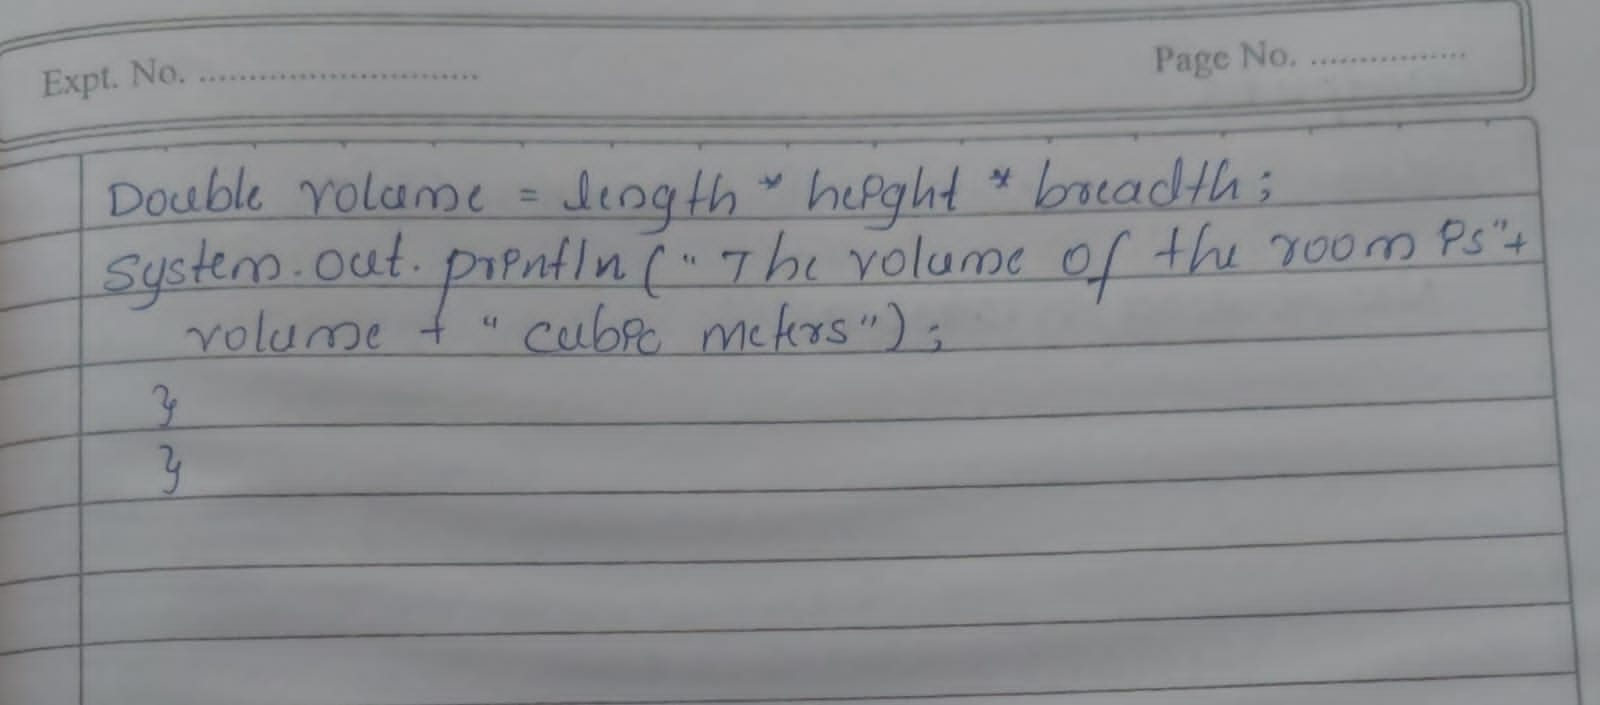 Expt. No. ............................
Page No. ................
Double volume = length * height * breadth;
System.out.println("The volume of the room is"+
volume + " cubic meters");
}
}